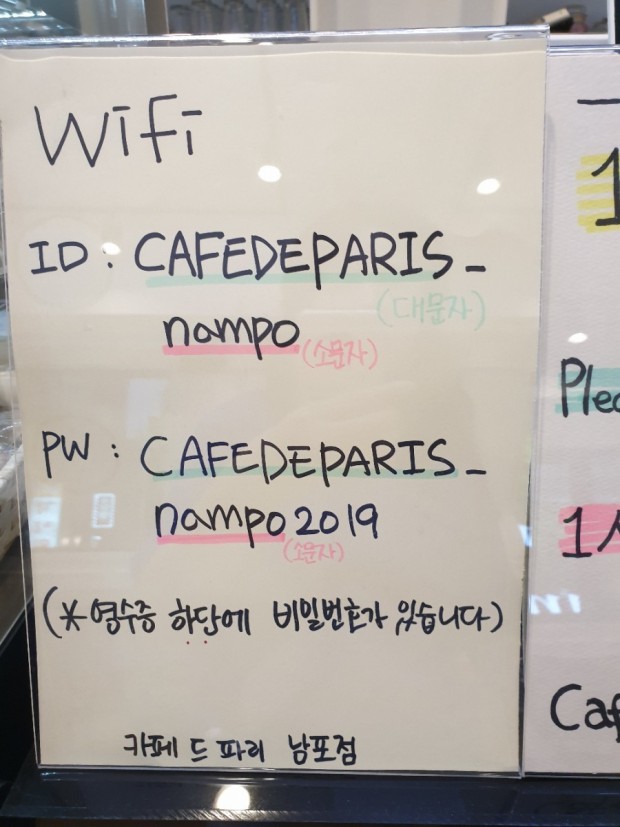 Wifi
ID : CAFEDEPARIS_
(대문자)
nampo (소문자)
PW : CAFEDEPARIS_
nampo2019
(소문자)
(※영수증 하단에 비밀번호가 있습니다)
카페 드 파리 남포점
1
Plea
1人
Caf